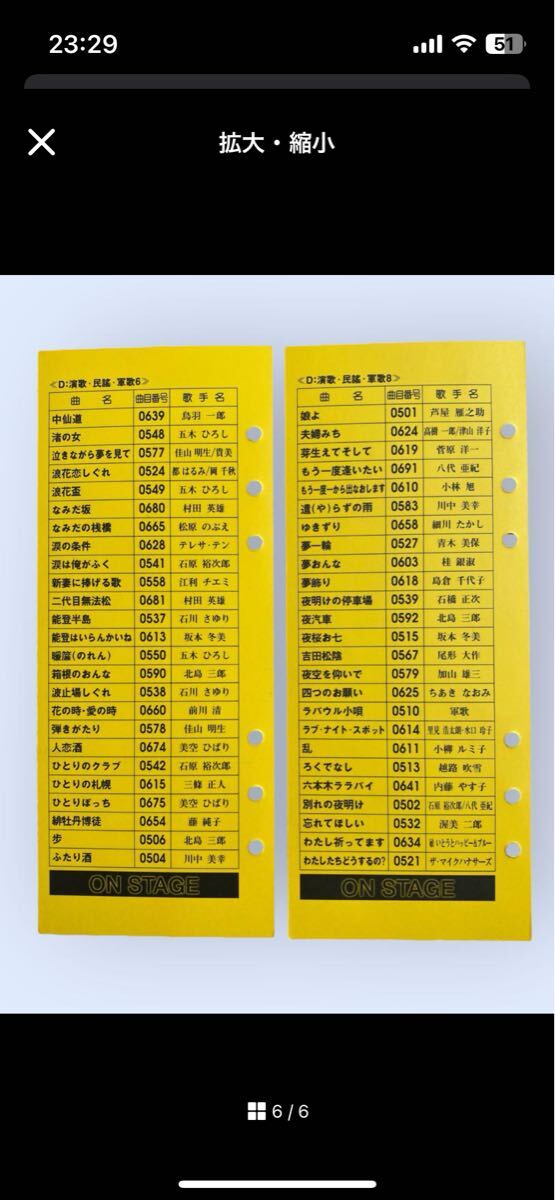 23:29
51
拡大・縮小
<D:演歌・民謡・軍歌6>
曲 名 曲目番号 歌 手 名
中仙道 0639 鳥羽 一郎
渚の女 0548 五木 ひろし
泣きながら夢を見て 0577 佳山 明生/貴美
浪花恋しぐれ 0524 都 はるみ/岡 千秋
浪花盃 0549 五木 ひろし
なみだ坂 0680 村田 英雄
なみだの桟橋 0665 松原 のぶえ
涙の条件 0628 テレサ・テン
涙は俺がふく 0541 石原 裕次郎
新妻に捧げる歌 0558 江利 チエミ
二代目無法松 0681 村田 英雄
能登半島 0537 石川 さゆり
能登はいらんかいね 0613 坂本 冬美
暖簾(のれん) 0550 五木 ひろし
箱根のおんな 0590 北島 三郎
波止場しぐれ 0538 石川 さゆり
花の時・愛の時 0660 前川 清
弾きがたり 0578 佳山 明生
人恋酒 0674 美空 ひばり
ひとりのクラブ 0542 石原 裕次郎
ひとりの札幌 0615 三條 正人
ひとりぼっち 0675 美空 ひばり
緋牡丹博徒 0654 藤 純子
歩 0506 北島 三郎
ふたり酒 0504 川中 美幸
ON STAGE
<D:演歌・民謡・軍歌8>
曲 名 曲目番号 歌 手 名
娘よ 0501 芦屋 雁之助
夫婦みち 0624 高樹 一郎/津山 洋子
芽生えてそして 0619 菅原 洋一
もう一度逢いたい 0691 八代 亜紀
もう一度一から出なおします 0610 小林 旭
遣(や)らずの雨 0583 川中 美幸
ゆきずり 0658 細川 たかし
夢一輪 0527 青木 美保
夢おんな 0603 桂 銀淑
夢飾り 0618 島倉 千代子
夜明けの停車場 0539 石橋 正次
夜汽車 0592 北島 三郎
夜桜お七 0515 坂本 冬美
吉田松陰 0567 尾形 大作
夜空を仰いで 0579 加山 雄三
四つのお願い 0625 ちあき なおみ
ラバウル小唄 0510 軍歌
ラブ・ナイト・スポット 0614 里見 浩太朗・水口 玲子
乱 0611 小柳 ルミ子
ろくでなし 0513 越路 吹雪
六本木ララバイ 0641 内藤 やす子
別れの夜明け 0502 石原 裕次郎/八代 亜紀
忘れてほしい 0532 渥美 二郎
わたし祈ってます 0634 敏いとうとハッピー&ブルー
わたしたちどうするの? 0521 ザ・マイクハナサーズ
ON STAGE
6 / 6